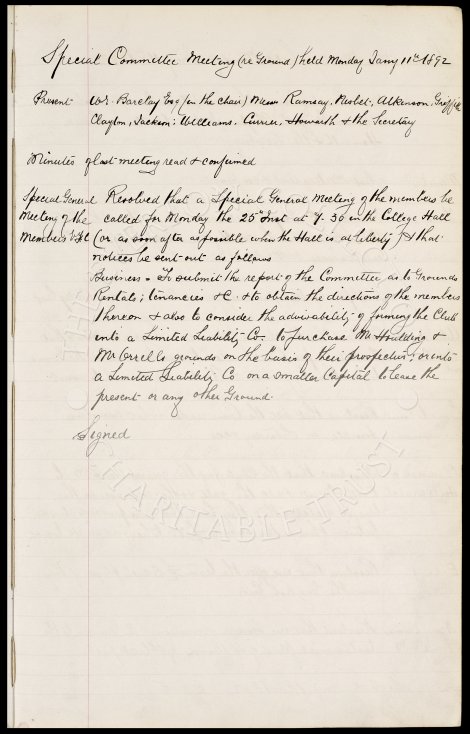 Special Committee Meeting (re Ground) held Monday Jany 11th 1892
Present W. Barclay Esq (in the chair) Messrs Ramsay, Nisbet, Atkinson, Griffiths
Clayton, Jackson; Williams, Currier, Howarth & the Secretary
Minutes of last meeting read & confirmed
Special General Resolved that a Special General Meeting of the members be
Meeting of the called for Monday the 25th Inst at 7.30 in the College Hall
Members (or as soon after as possible when the Hall is at liberty) & that
notices be sent out as follows
Business - To submit the report of the Committee, as to Grounds
Rentals; tenancies &c. & to obtain the directions of the members
thereon & also to consider the advisability of forming the Club
into a Limited Liability Co. to purchase Mr Houlding &
Mr Orrells grounds on the basis of their prospectus; or into
a Limited Liability Co on a smaller Capital to lease the
present or any other Ground.
Signed
CHARITABLE TRUST